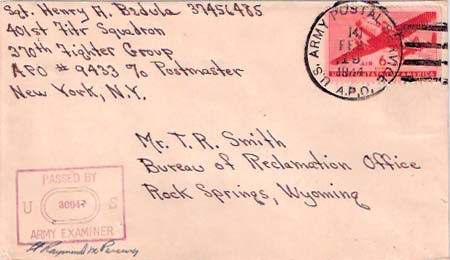 Sgt. Henry H. Bzdula 37456485
401st Ftr Squadron
370th Fighter Group
APO # 9433 % Postmaster
New York, N.Y.
U.S. ARMY POSTAL SERVICE
141
FEB
19
1944
A.P.O.
AIR 6¢
UNITED STATES OF AMERICA
Mr. T. R. Smith
Bureau of Reclamation Office
Rock Springs, Wyoming
PASSED BY
U 30947 S
ARMY EXAMINER
Raymond